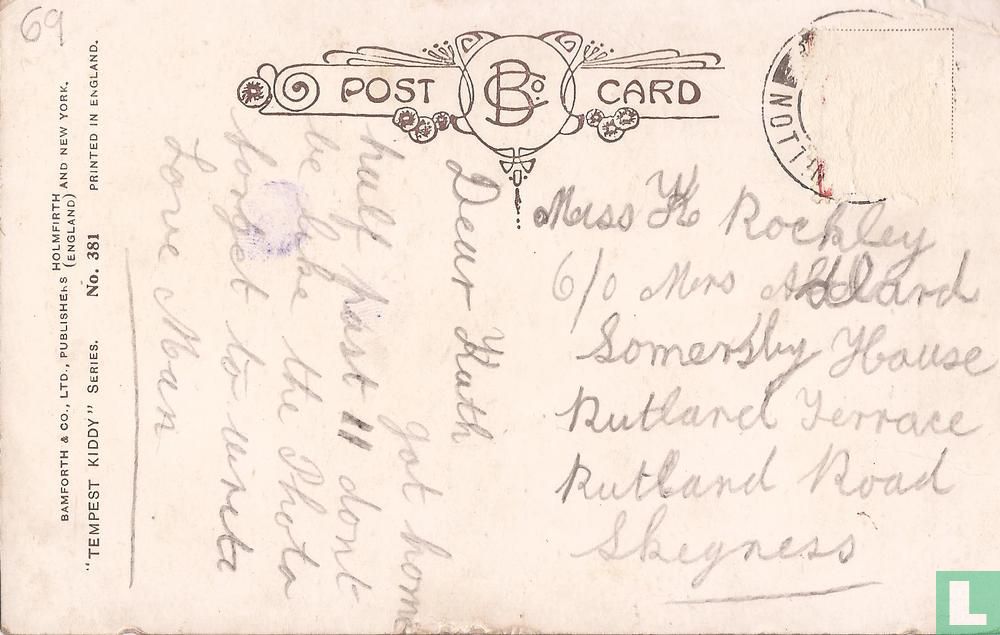 69
BAMFORTH & CO., LTD., PUBLISHERS HOLMFIRTH
(ENGLAND) AND NEW YORK.
"TEMPEST KIDDY" SERIES. No. 381 PRINTED IN ENGLAND.
POST CARD
B Co.
Dear Ruth
got home
half past 11 dont
be like the Photo
forget to write
Love Nan
Miss K Rockley
c/o Mrs Allard
Somersby House
Rutland Terrace
Rutland Road
Skegness
L